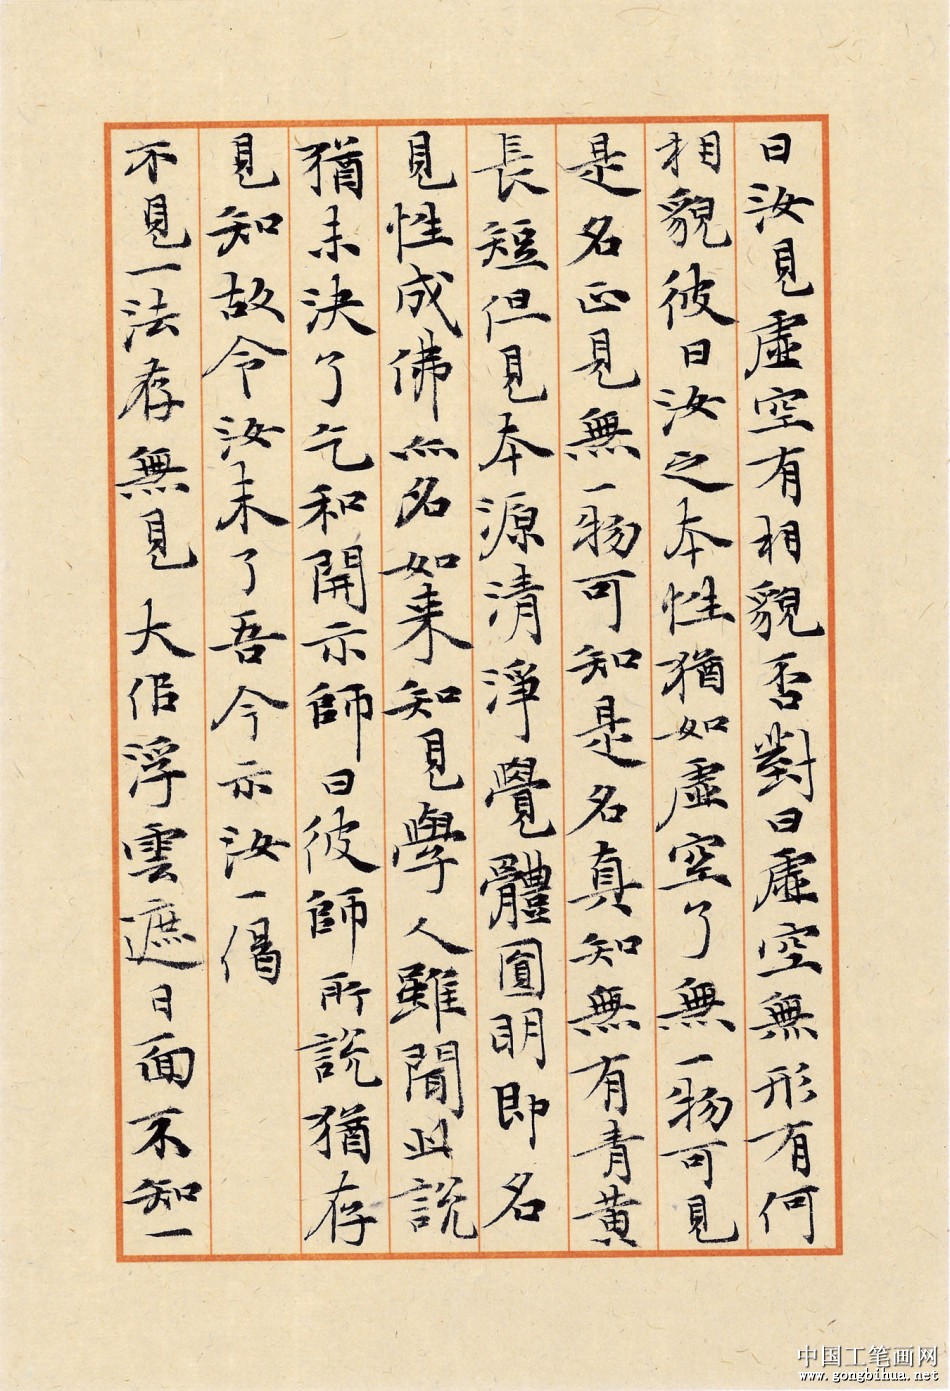 曰汝見虛空有相貌否對曰虛空無形有何
相貌彼曰汝之本性猶如虛空了無一物可見
是名正見無一物可知是名真知無有青黃
長短但見本源清淨覺體圓明即名
見性成佛亦名如来知見學人雖聞此說
猶未決了乞和開示師曰彼師所說猶存
見知故令汝未了吾今示汝一偈
不見一法存無見 大佀浮雲遮日面不知一
中国工笔画网
www.gongbihua.net